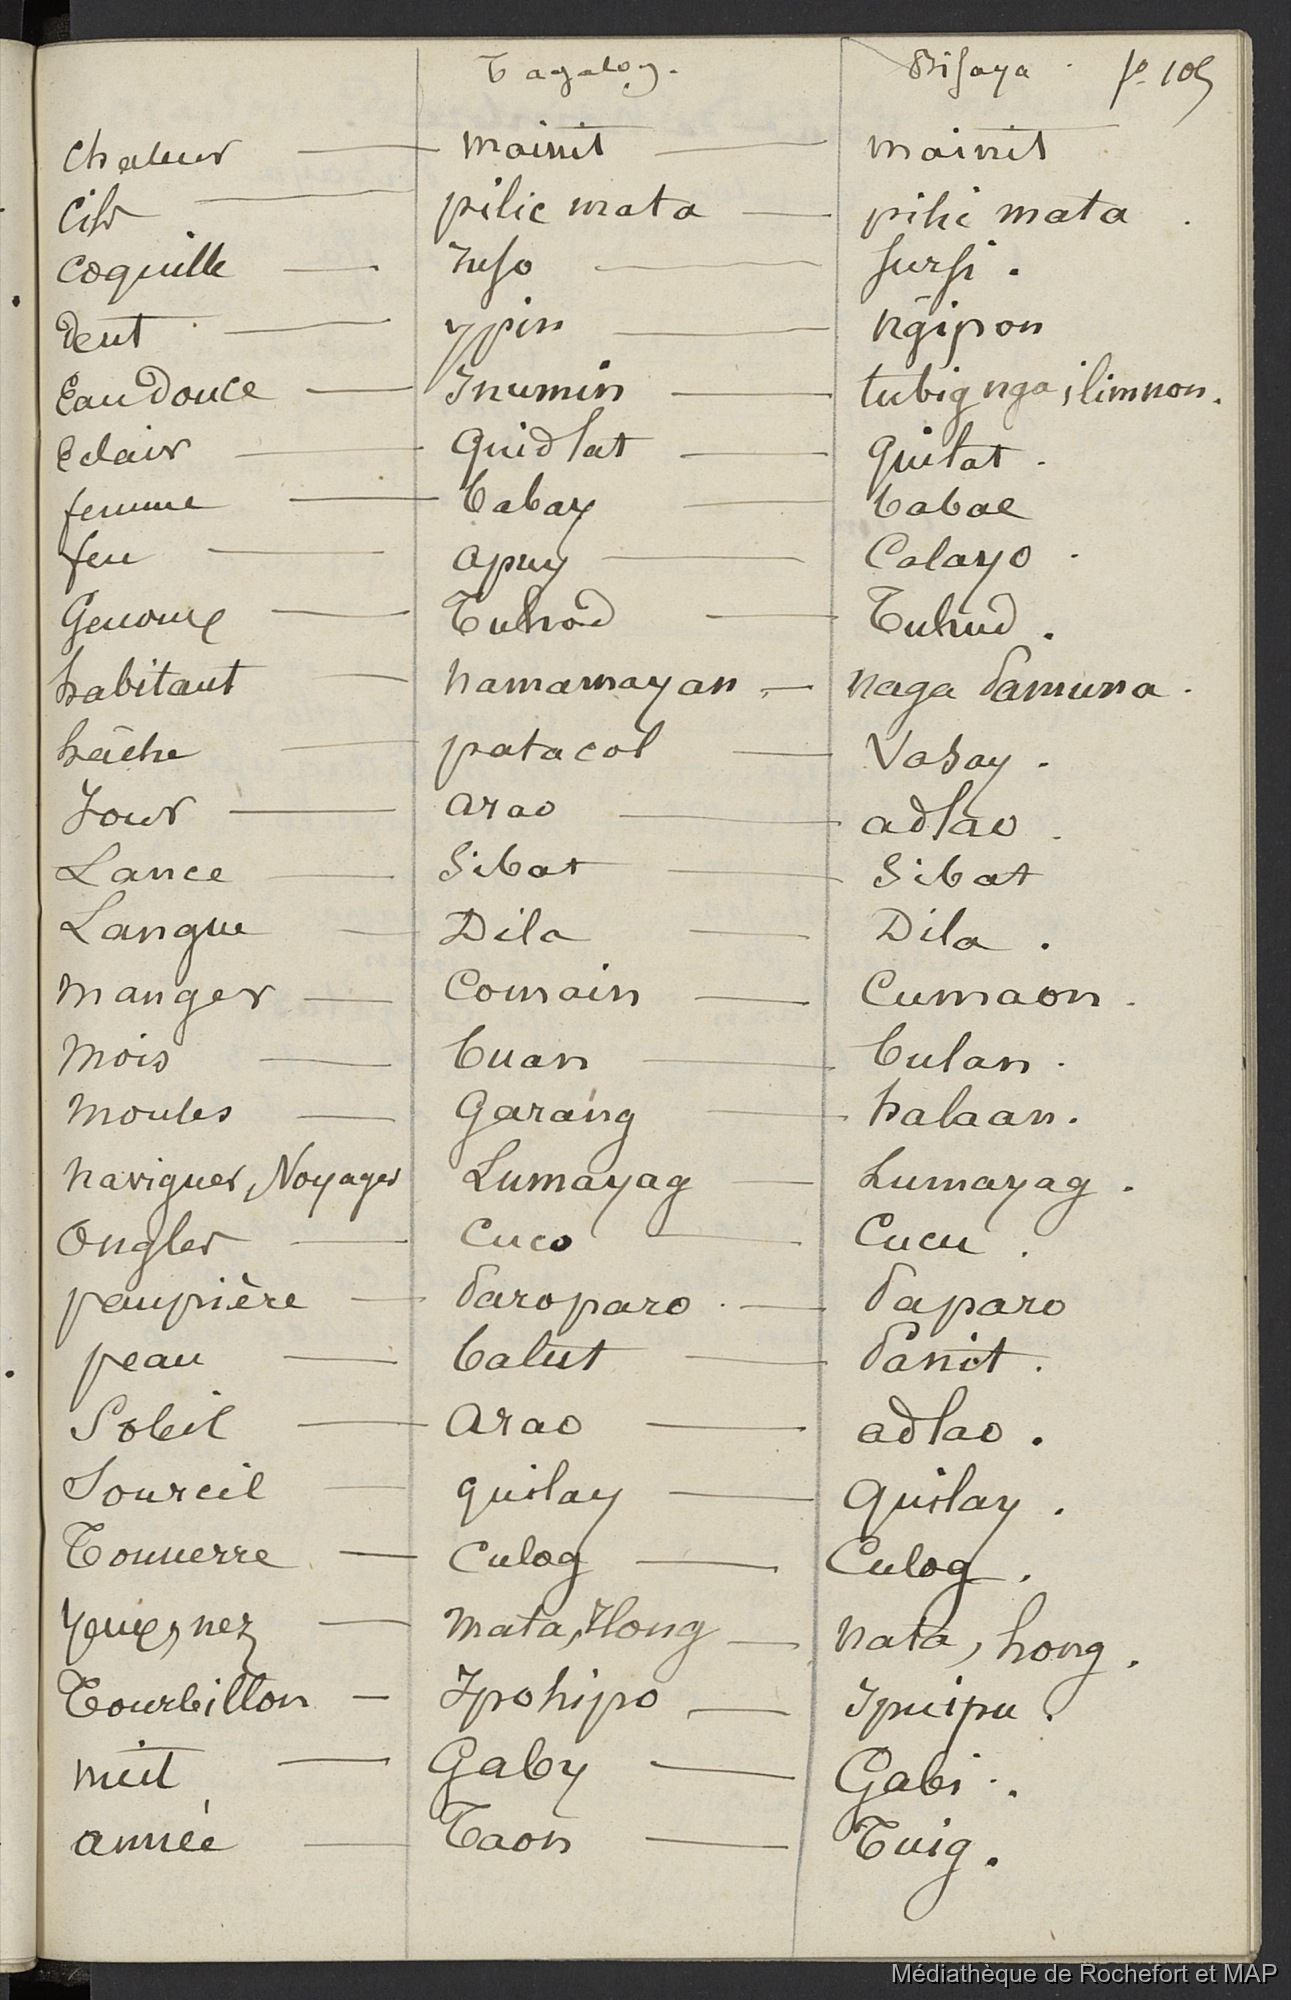 Tagalog. Bisaya. fo. 105
Chaleur mainit mainit
Cils pilic mata pilic mata.
Coquille suso sursi.
Dent ypin ngipon
Eau Douce Inumin tubig nga ilimnon.
Eclair Quidlat Quilat.
femme babay babae
feu apuy Calayo.
Genoux Tuhod Tuhud.
habitant namamayan naga pamuna.
hâche patacol Vasay.
Jour arao adlao.
Lance Sibat Sibat
Langue Dila Dila.
manger Comain Cumaon.
Mois buan bulan.
Moules Garang halaan.
naviguer, Voyager Lumayag Lumayag.
Ongles Cuco Cucu.
paupière paroparo paparo
peau balut panit.
Soleil arao adlao.
Sourcil quilay Quilay.
Tonnerre Culog Culog.
Yeux, nez mata, Ilong nata, hong.
Tourbillon Ipohipo Ipuipu.
nuit Gaby Gabi.
année Taon Tuig.
Médiathèque de Rochefort et MAP